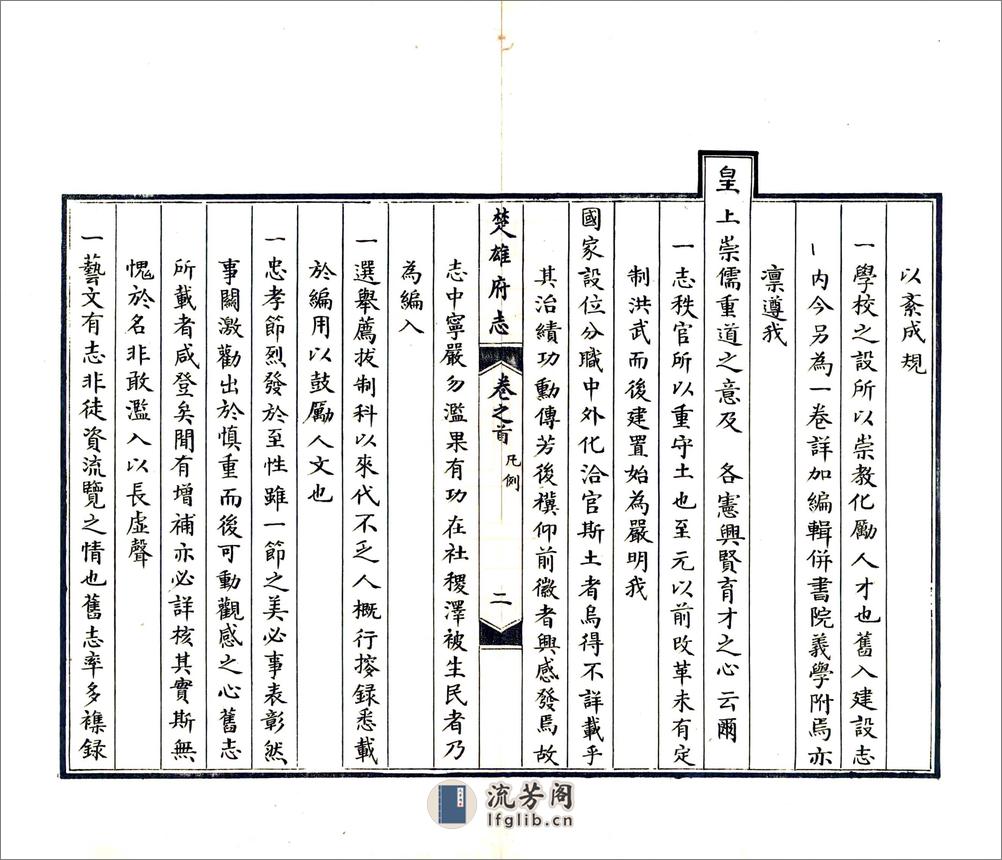 以紊成規
一學校之設所以崇教化勵人才也舊入建設志
内今另為一卷詳加編輯併書院義學附焉亦
凛遵我
皇上崇儒重道之意及　各憲興賢育才之心云爾
一志秩官所以重守土也至元以前改革未有定
制洪武而後建置始為嚴明我
國家設位分職中外化洽官斯土者烏得不詳載乎
其治績功勳傳芳後禩仰前徽者興感發焉故
楚雄府志　卷之首　凡例　二
志中寧嚴勿濫果有功在社稷澤被生民者乃
為編入
一選舉薦拔制科以來代不乏人概行搜録悉載
於編用以鼓勵人文也
一忠孝節烈發於至性雖一節之美必事表彰然
事關激勸出於慎重而後可動觀感之心舊志
所載者咸登矣閒有增補亦必詳核其實斯無
愧於名非敢濫入以長虛聲
一藝文有志非徒資流覽之情也舊志率多襍録
流芳阁
lfglib.cn